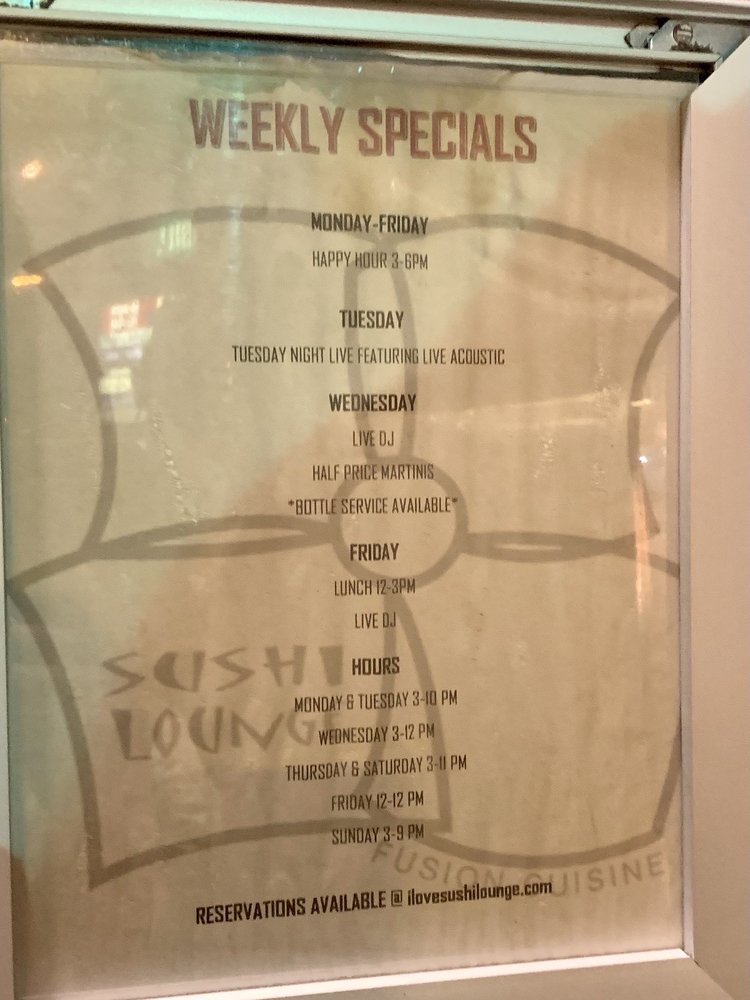 WEEKLY SPECIALS
MONDAY-FRIDAY
HAPPY HOUR 3-6PM
TUESDAY
TUESDAY NIGHT LIVE FEATURING LIVE ACOUSTIC
WEDNESDAY
LIVE DJ
HALF PRICE MARTINIS
*BOTTLE SERVICE AVAILABLE*
FRIDAY
LUNCH 12-3PM
LIVE DJ
SUSHI
LOUNGE
HOURS
MONDAY & TUESDAY 3-10 PM
WEDNESDAY 3-12 PM
THURSDAY & SATURDAY 3-11 PM
FRIDAY 12-12 PM
SUNDAY 3-9 PM
FUSION CUISINE
RESERVATIONS AVAILABLE @ ilovesushilounge.com